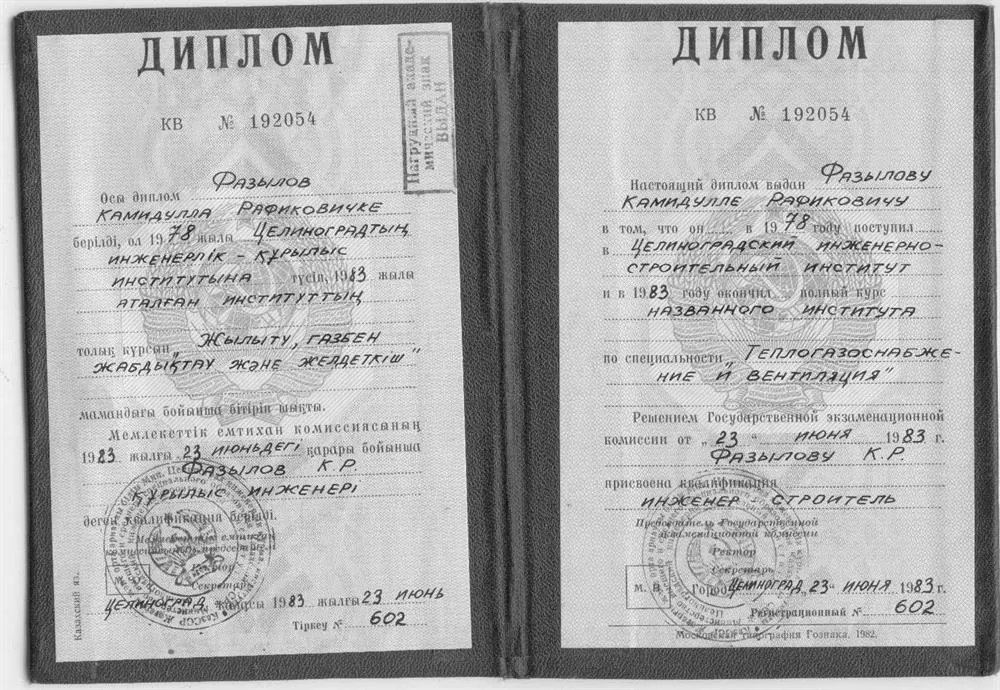 ДИПЛОМ
КВ № 192054
Нагрудный акаде-
мический знак
ВЫДАН
Осы диплом Фазылов
Камидулла Рафиковичке
берілді, ол 1978 жылы Целиноградтың
инженерлік - құрылыс
институтына түсіп, 1983 жылы
аталған институттың
толық курсын „Жылыту, газбен
жабдықтау және желдеткіш"
мамандығы бойынша бітіріп шықты.
Мемлекеттік емтихан комиссиясының
1983 жылғы „23 июньдегі қарары бойынша
Фазылов К.Р.
құрылыс инженері
деген квалификация берілді.
Ректор
Секретарь
Целиноград қаласы 1983 жылғы 23 июнь
Тіркеу № 602
Казахский яз.
ДИПЛОМ
КВ № 192054
Настоящий диплом выдан Фазылову
Камидулле Рафиковичу
в том, что он в 1978 году поступил
в Целиноградский инженерно-
строительный институт
и в 1983 году окончил полный курс
названного института
по специальности „Теплогазоснабже-
ние и вентиляция"
Решением Государственной экзаменационной
комиссии от „23" июня 1983 г.
Фазылову К.Р.
присвоена квалификация
инженер - строитель
Председатель Государственной
экзаменационной комиссии
Ректор
Секретарь
М. П. Город Целиноград „23" июня 1983 г.
Регистрационный № 602
Московская типография Гознака. 1982.